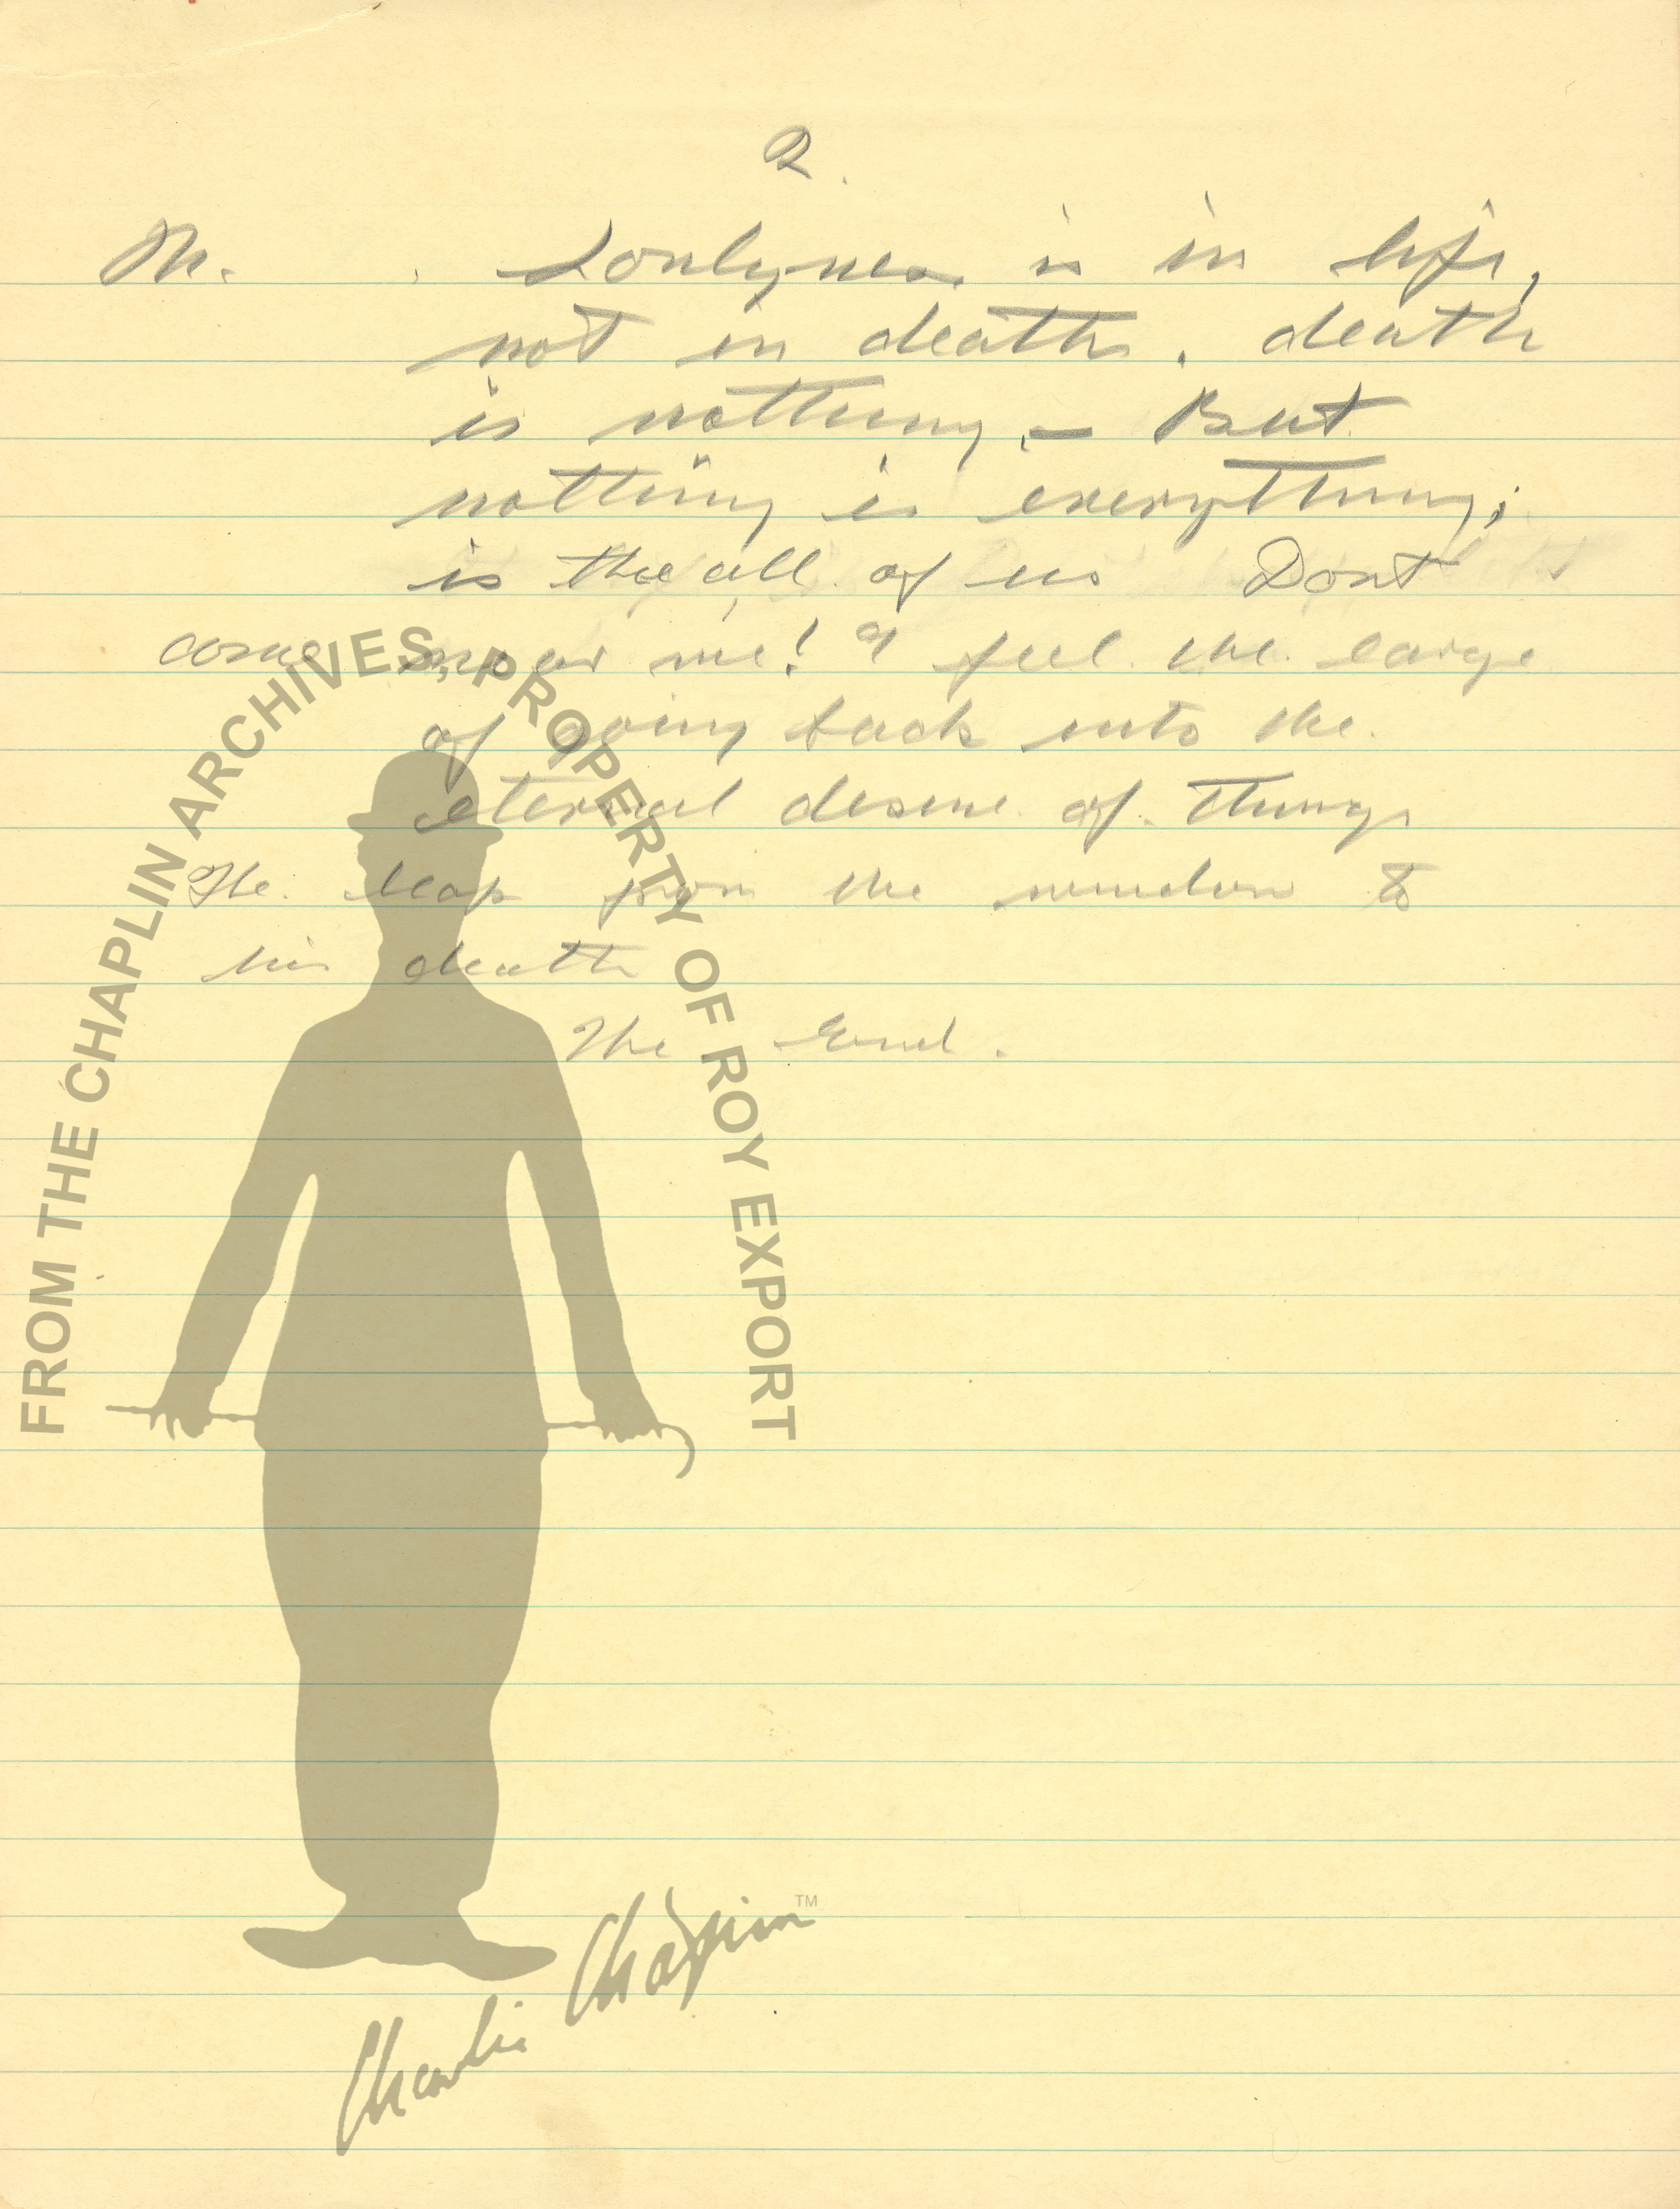 2.
M. Lonlyness is in life,
not in death. death
is nothing. - But
nothing is everything;
is the all of us Dont
come near me! I feel the
of going back into the
eternal desire of things
He leap from the window to
his death
The End.
FROM THE CHAPLIN ARCHIVES, PROPERTY OF ROY EXPORT
Charlie Chaplin TM